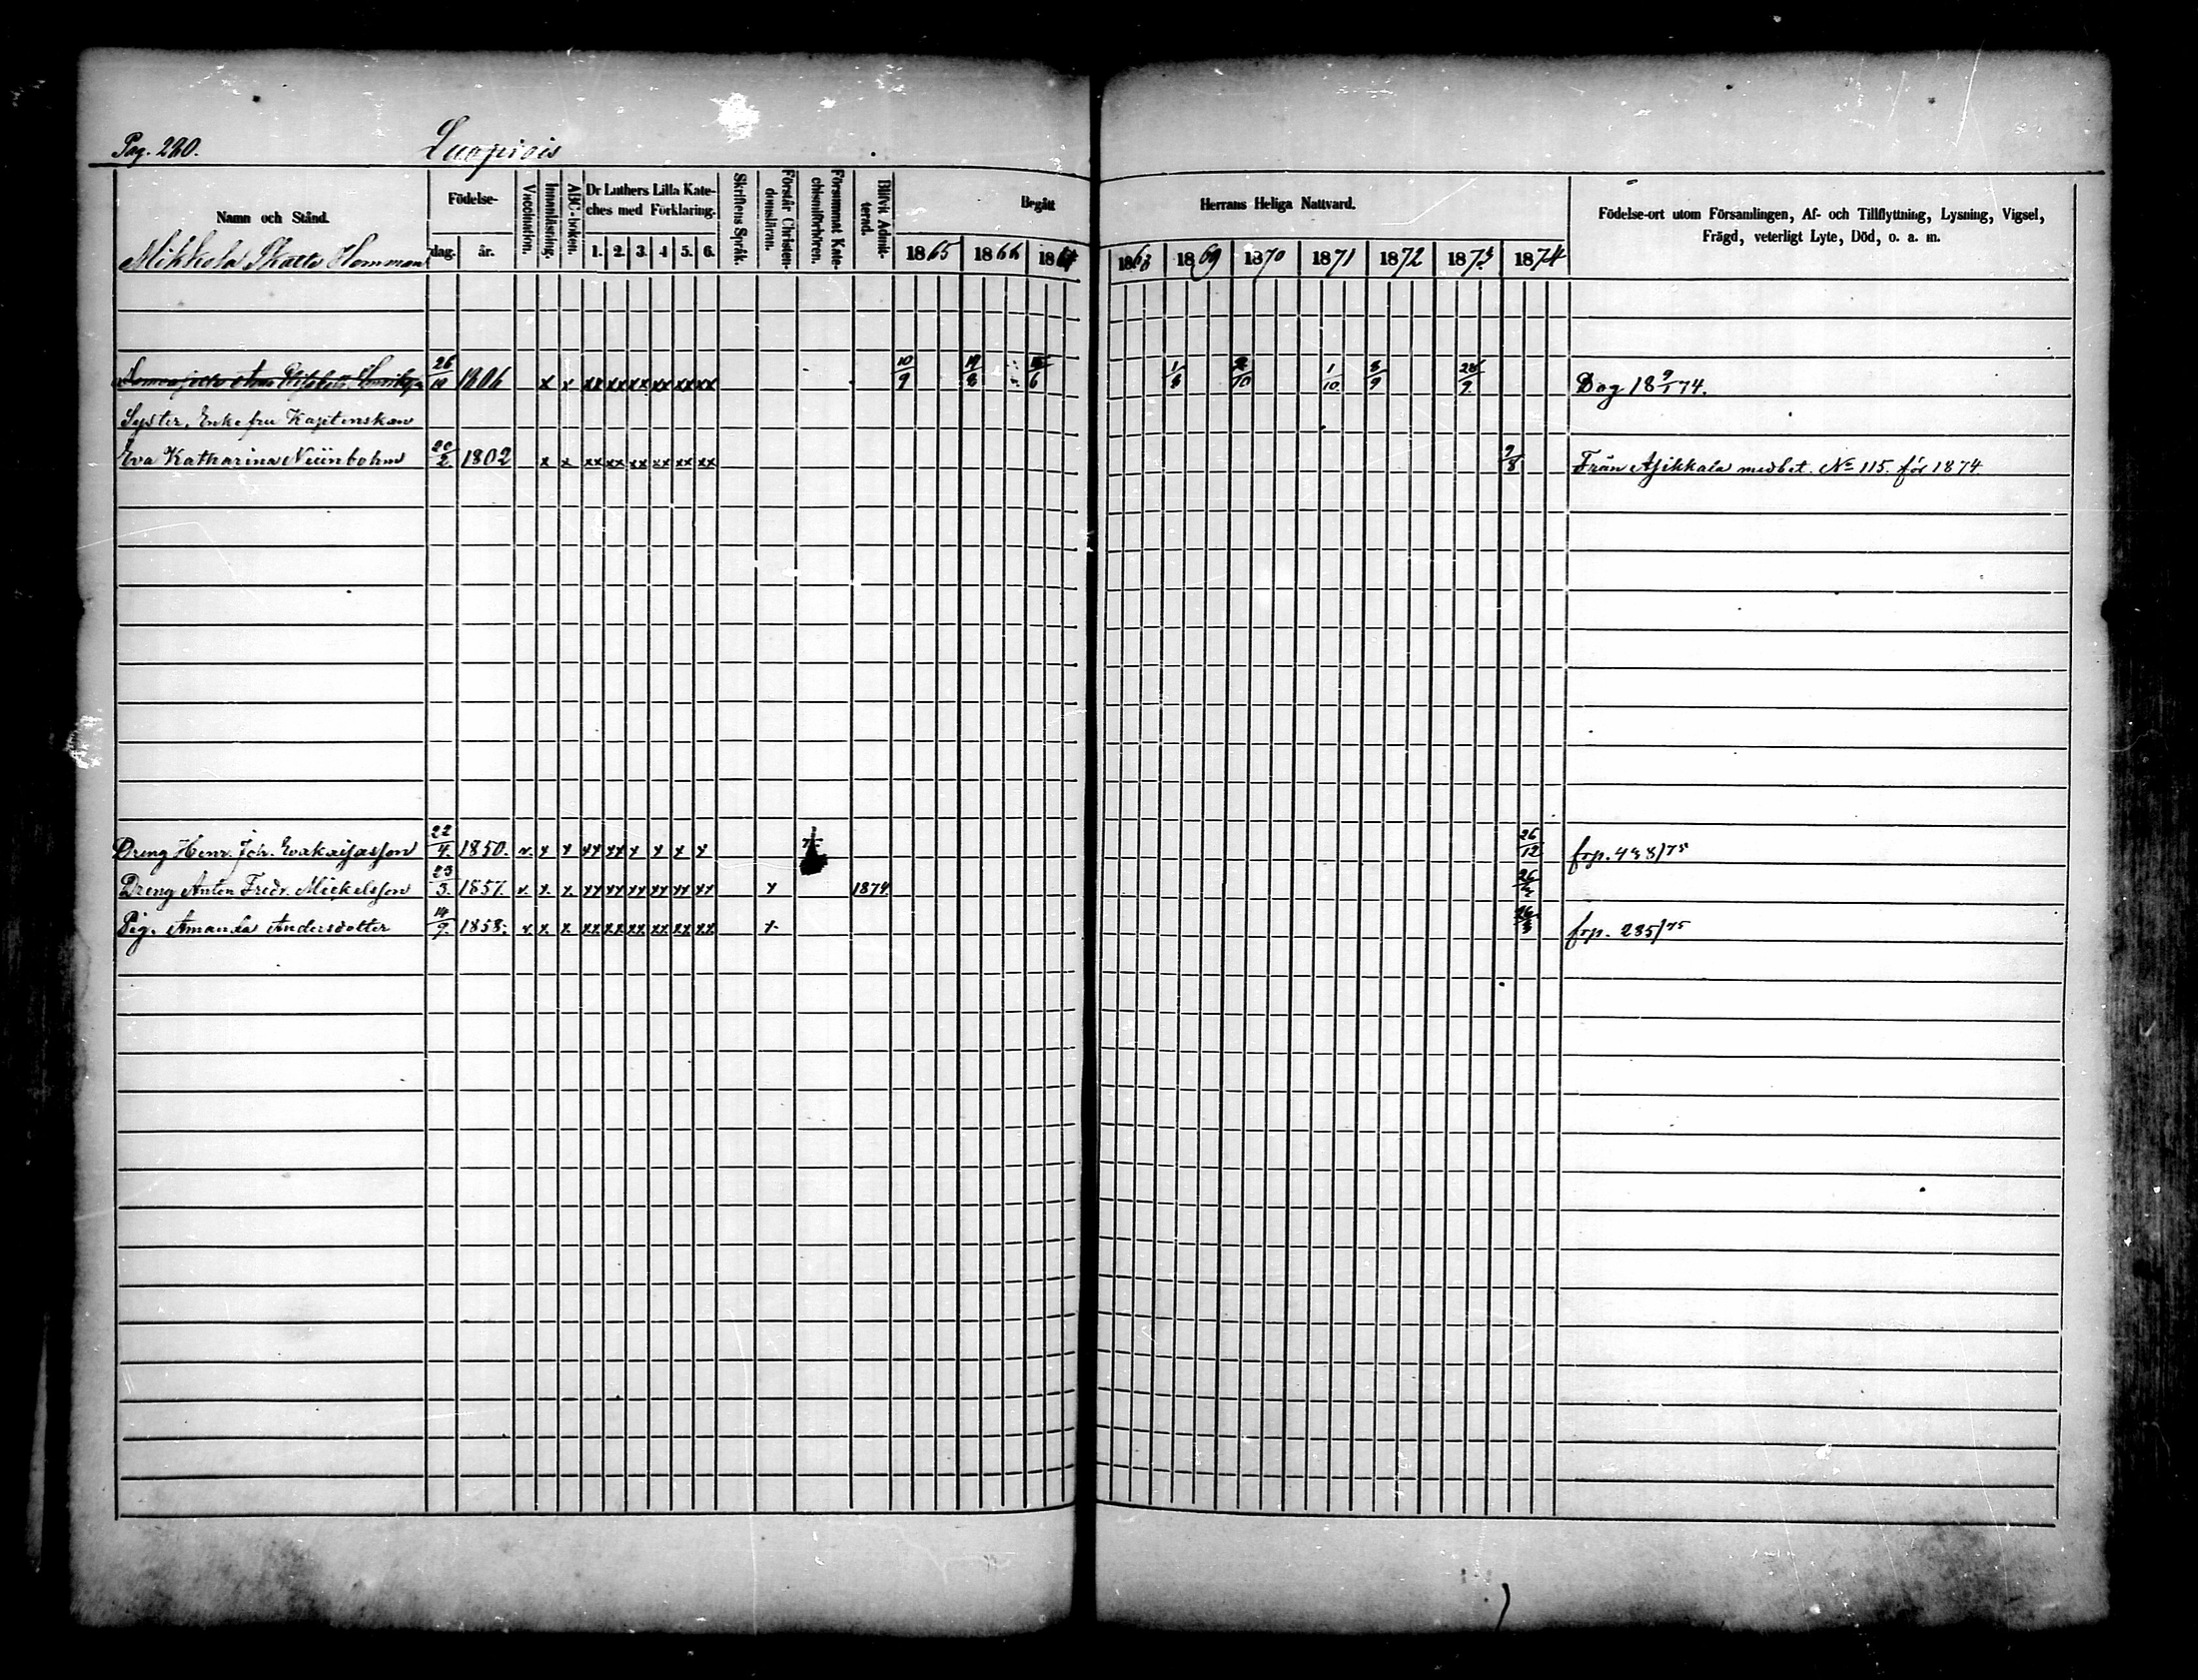 Pag. 280. Luopiois
Namn och Stånd. Födelse- dag. år. Vaccination. Innanläsning. ABC-boken. Dr Luthers Lilla Kate-ches med Förklaring. 1. 2. 3. 4 5. 6. Skriftens Språk. Förstår Christen-domsläran. Försummat Kate-chismiförhören. Blifvit Admit-terad. Begått Herrans Heliga Nattvard. Födelse-ort utom Församlingen, Af- och Tillflyttning, Lysning, Vigsel, Frägd, veterligt Lyte, Död, o. a. m.
1865 1866 1867 1868 1869 1870 1871 1872 1873 1874
Mikkola Skatte Hemman
26/10 1806 x x xx xx xx xx xx xx 10/9 1/8 1/10 8/9 28/9 Dog 18 9/1 74.
Syster, Enke fru Kapitenskan
Eva Katharina 20/2 1802 x x xx xx xx xx xx xx 9/8 Från Asikkala med bet. No 115. för 1874
Dreng Henr. Joh. Evakaisasson 22/4. 1850. v. x x xx xx x x x x 26/12 frp. 438/75
Dreng Anton Fredr. Mickelsson 23/3. 1857. v. x. x. xx xx xx xx xx xx x 1874
Pig. Amanda Andersdotter 14/9. 1858. v x. x xx xx xx xx xx xx x. frp. 235/75